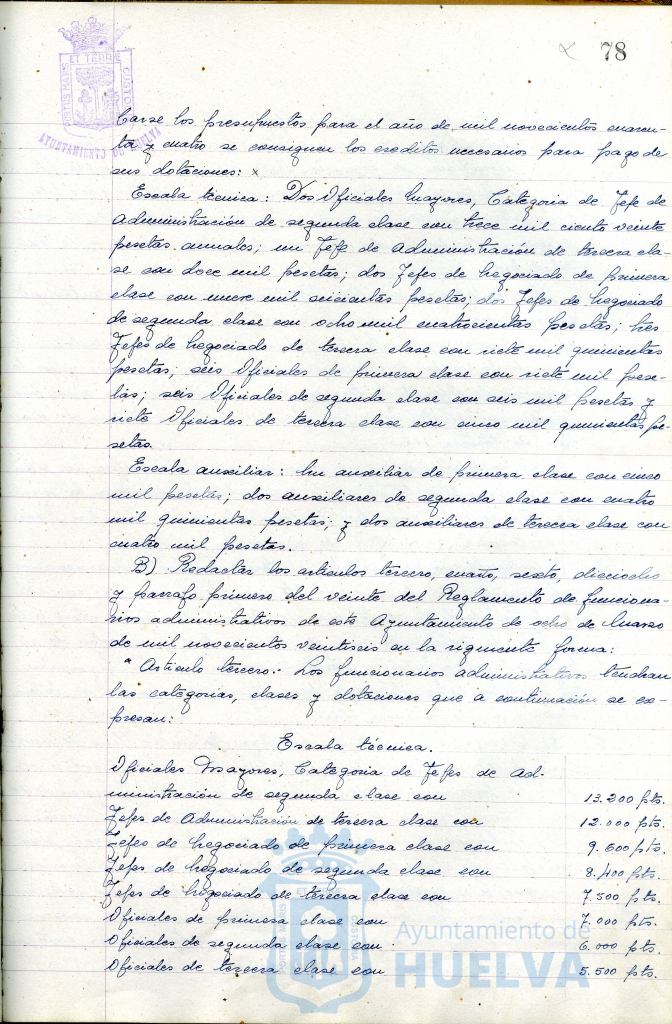 78
PORTUS MARIS ET TERRE CUSTODIA
AYUNTAMIENTO DE HUELVA
carse los presupuestos para el año de mil novecientos cuaren-
ta y cuatro se consignen los creditos necesarios para pago de
sus dotaciones: x
Escala técnica: Dos Oficiales Mayores, Categoria de Jefe de
Administración de segunda clase con trece mil ciento veinte
pesetas anuales; un Jefe de Administración de tercera cla-
se con doce mil pesetas; dos Jefes de Negociado de primera
clase con nueve mil seiscientas pesetas; dos Jefes de Negociado
de segunda clase con ocho mil cuatrocientas pesetas; tres
Jefes de Negociado de tercera clase con siete mil quinientas
pesetas; seis Oficiales de primera clase con siete mil pese-
tas; seis Oficiales de segunda clase con seis mil pesetas y
siete Oficiales de tercera clase con cinco mil quinientas pe-
setas.
Escala auxiliar: Un auxiliar de primera clase con cinco
mil pesetas; dos auxiliares de segunda clase con cuatro
mil quinientas pesetas; y dos auxiliares de tercera clase con
cuatro mil pesetas.
B) Redactar los articulos tercero, cuarto, sexto, dieciocho
y parrafo primero del veinte del Reglamento de funciona-
rios administrativos de este Ayuntamiento de ocho de Marzo
de mil novecientos veintiseis en la siguiente forma:
" Articulo tercero:- Los funcionarios administrativos tendran
las categorias, clases y dotaciones que a continuación se ex-
presan:
Escala técnica.
Oficiales Mayores, Categoria de Jefes de Ad-
ministración de segunda clase con 13.200 pts.
Jefes de Administración de tercera clase con 12.000 pts.
Jefes de Negociado de primera clase con 9.600 pts.
Jefes de Negociado de segunda clase con 8.400 pts.
Jefes de Negociado de tercera clase con 7.500 pts.
Oficiales de primera clase con 7.000 pts.
Oficiales de segunda clase con 6.000 pts.
Oficiales de tercera clase con 5.500 pts.
Ayuntamiento de
HUELVA